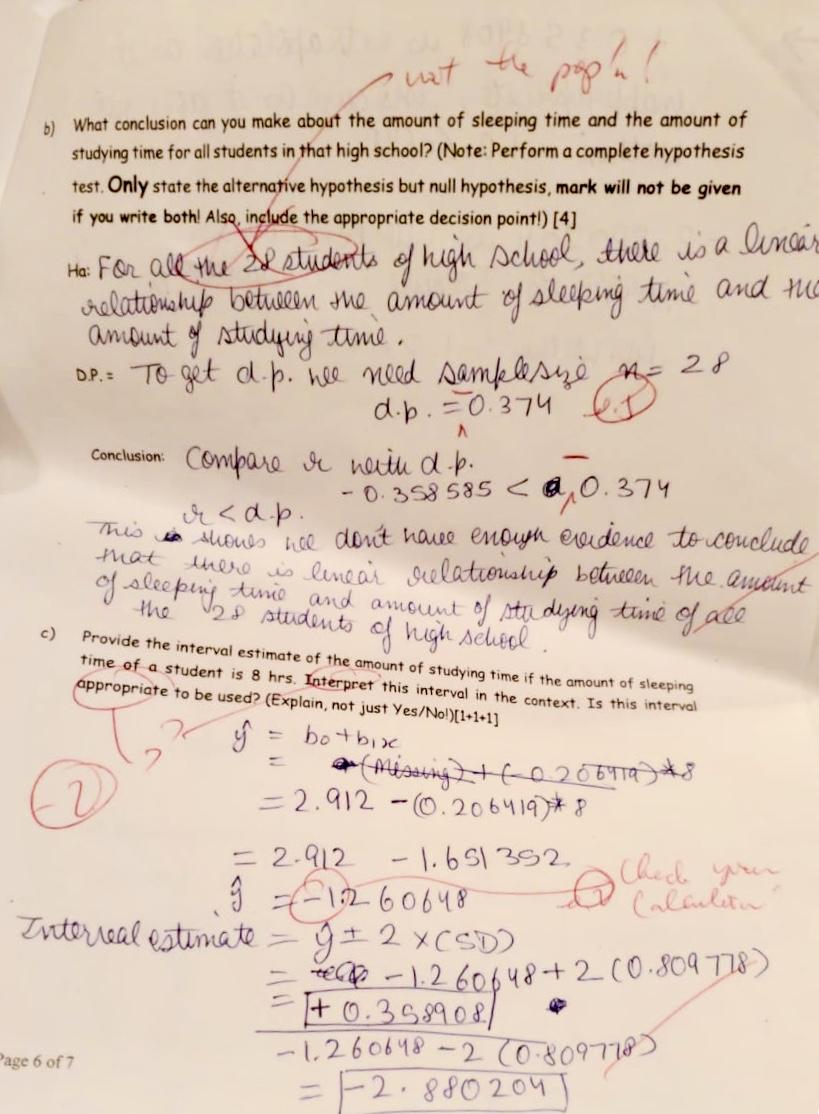 not the pop'n!
b) What conclusion can you make about the amount of sleeping time and the amount of
studying time for all students in that high school? (Note: Perform a complete hypothesis
test. Only state the alternative hypothesis but null hypothesis, mark will not be given
if you write both! Also, include the appropriate decision point!) [4]
Ha: For all the 28 students of high school, there is a linear
relationship between the amount of sleeping time and the
amount of studying time.
D.P. = To get d.p. we need sample size n = 28
d.p. = - 0.374
Conclusion: Compare r with d.p.
- 0.358585 < - 0.374
r < d.p.
This shows we don't have enough evidence to conclude
that there is linear relationship between the amount
of sleeping time and amount of studying time of all
the 28 students of high school.
c) Provide the interval estimate of the amount of studying time if the amount of sleeping
time of a student is 8 hrs. Interpret this interval in the context. Is this interval
appropriate to be used? (Explain, not just Yes/No!)[1+1+1]
? ?
-2
ŷ = b0 + b1x
= (Missing) + (-0.206419) * 8
= 2.912 - (0.206419) * 8
= 2.912 - 1.651352
ŷ = -1.260648
Check your
Interval estimate = ŷ ± 2 × (SD)
= -1.260648 + 2 (0.809778)
= + 0.358908
-1.260648 - 2 (0.809778)
= -2.880204
Page 6 of 7